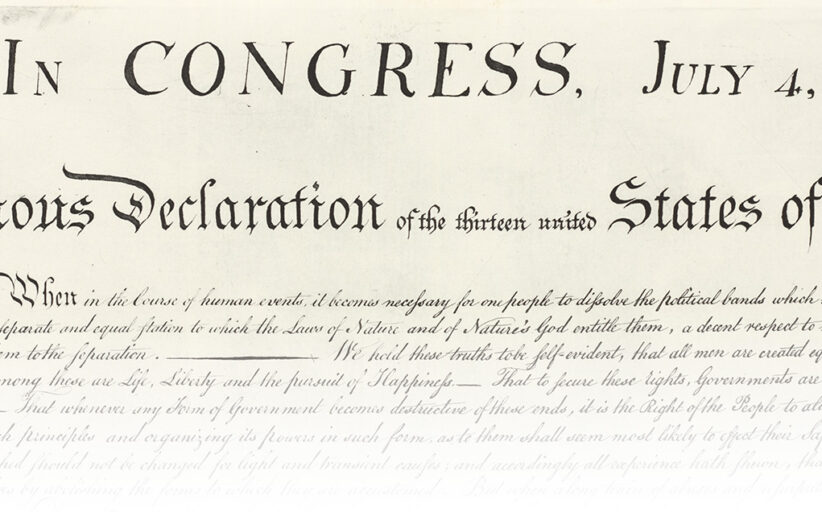 In CONGRESS, July 4,
Declaration of the thirteen united States of
When in the Course of human events, it becomes necessary for one people to dissolve the political bands which
separate and equal station to which the Laws of Nature and of Nature's God entitle them, a decent respect to
to the separation. We hold these truths to be self-evident, that all men are created
these are Life, Liberty and the pursuit of Happiness.— That to secure these rights, Governments are
— That whenever any Form of Government becomes destructive of these ends, it is the Right of the People to
principles and organizing its powers in such form, as to them shall seem most likely to effect their
should not be changed for light and transient causes; and accordingly all experience hath shewn,
by abolishing the forms to which they are accustomed. But when a long train of abuses and